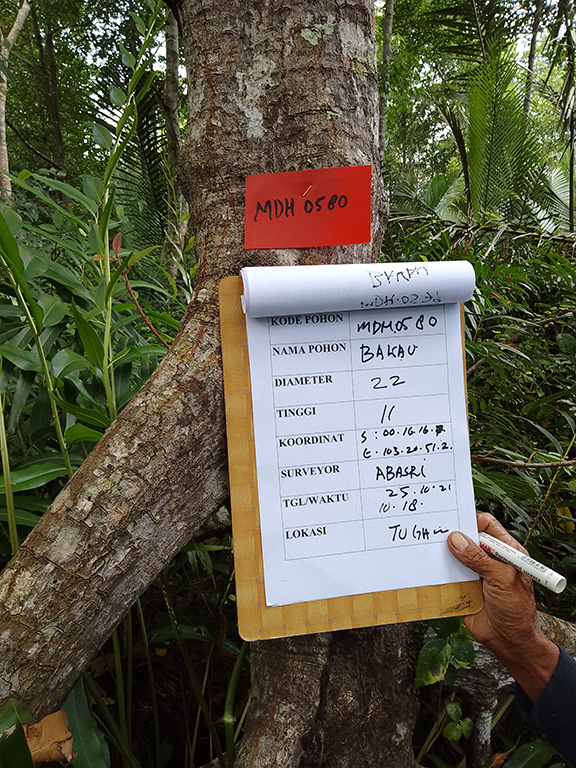 MDH 0580
KODE POHON MDH0580
NAMA POHON BAKAU
DIAMETER 22
TINGGI 11
KOORDINAT S : 00.16.16.
E. 103.20.51.2.
SURVEYOR ABASRI
TGL/WAKTU 25.10.21
10.18.
LOKASI